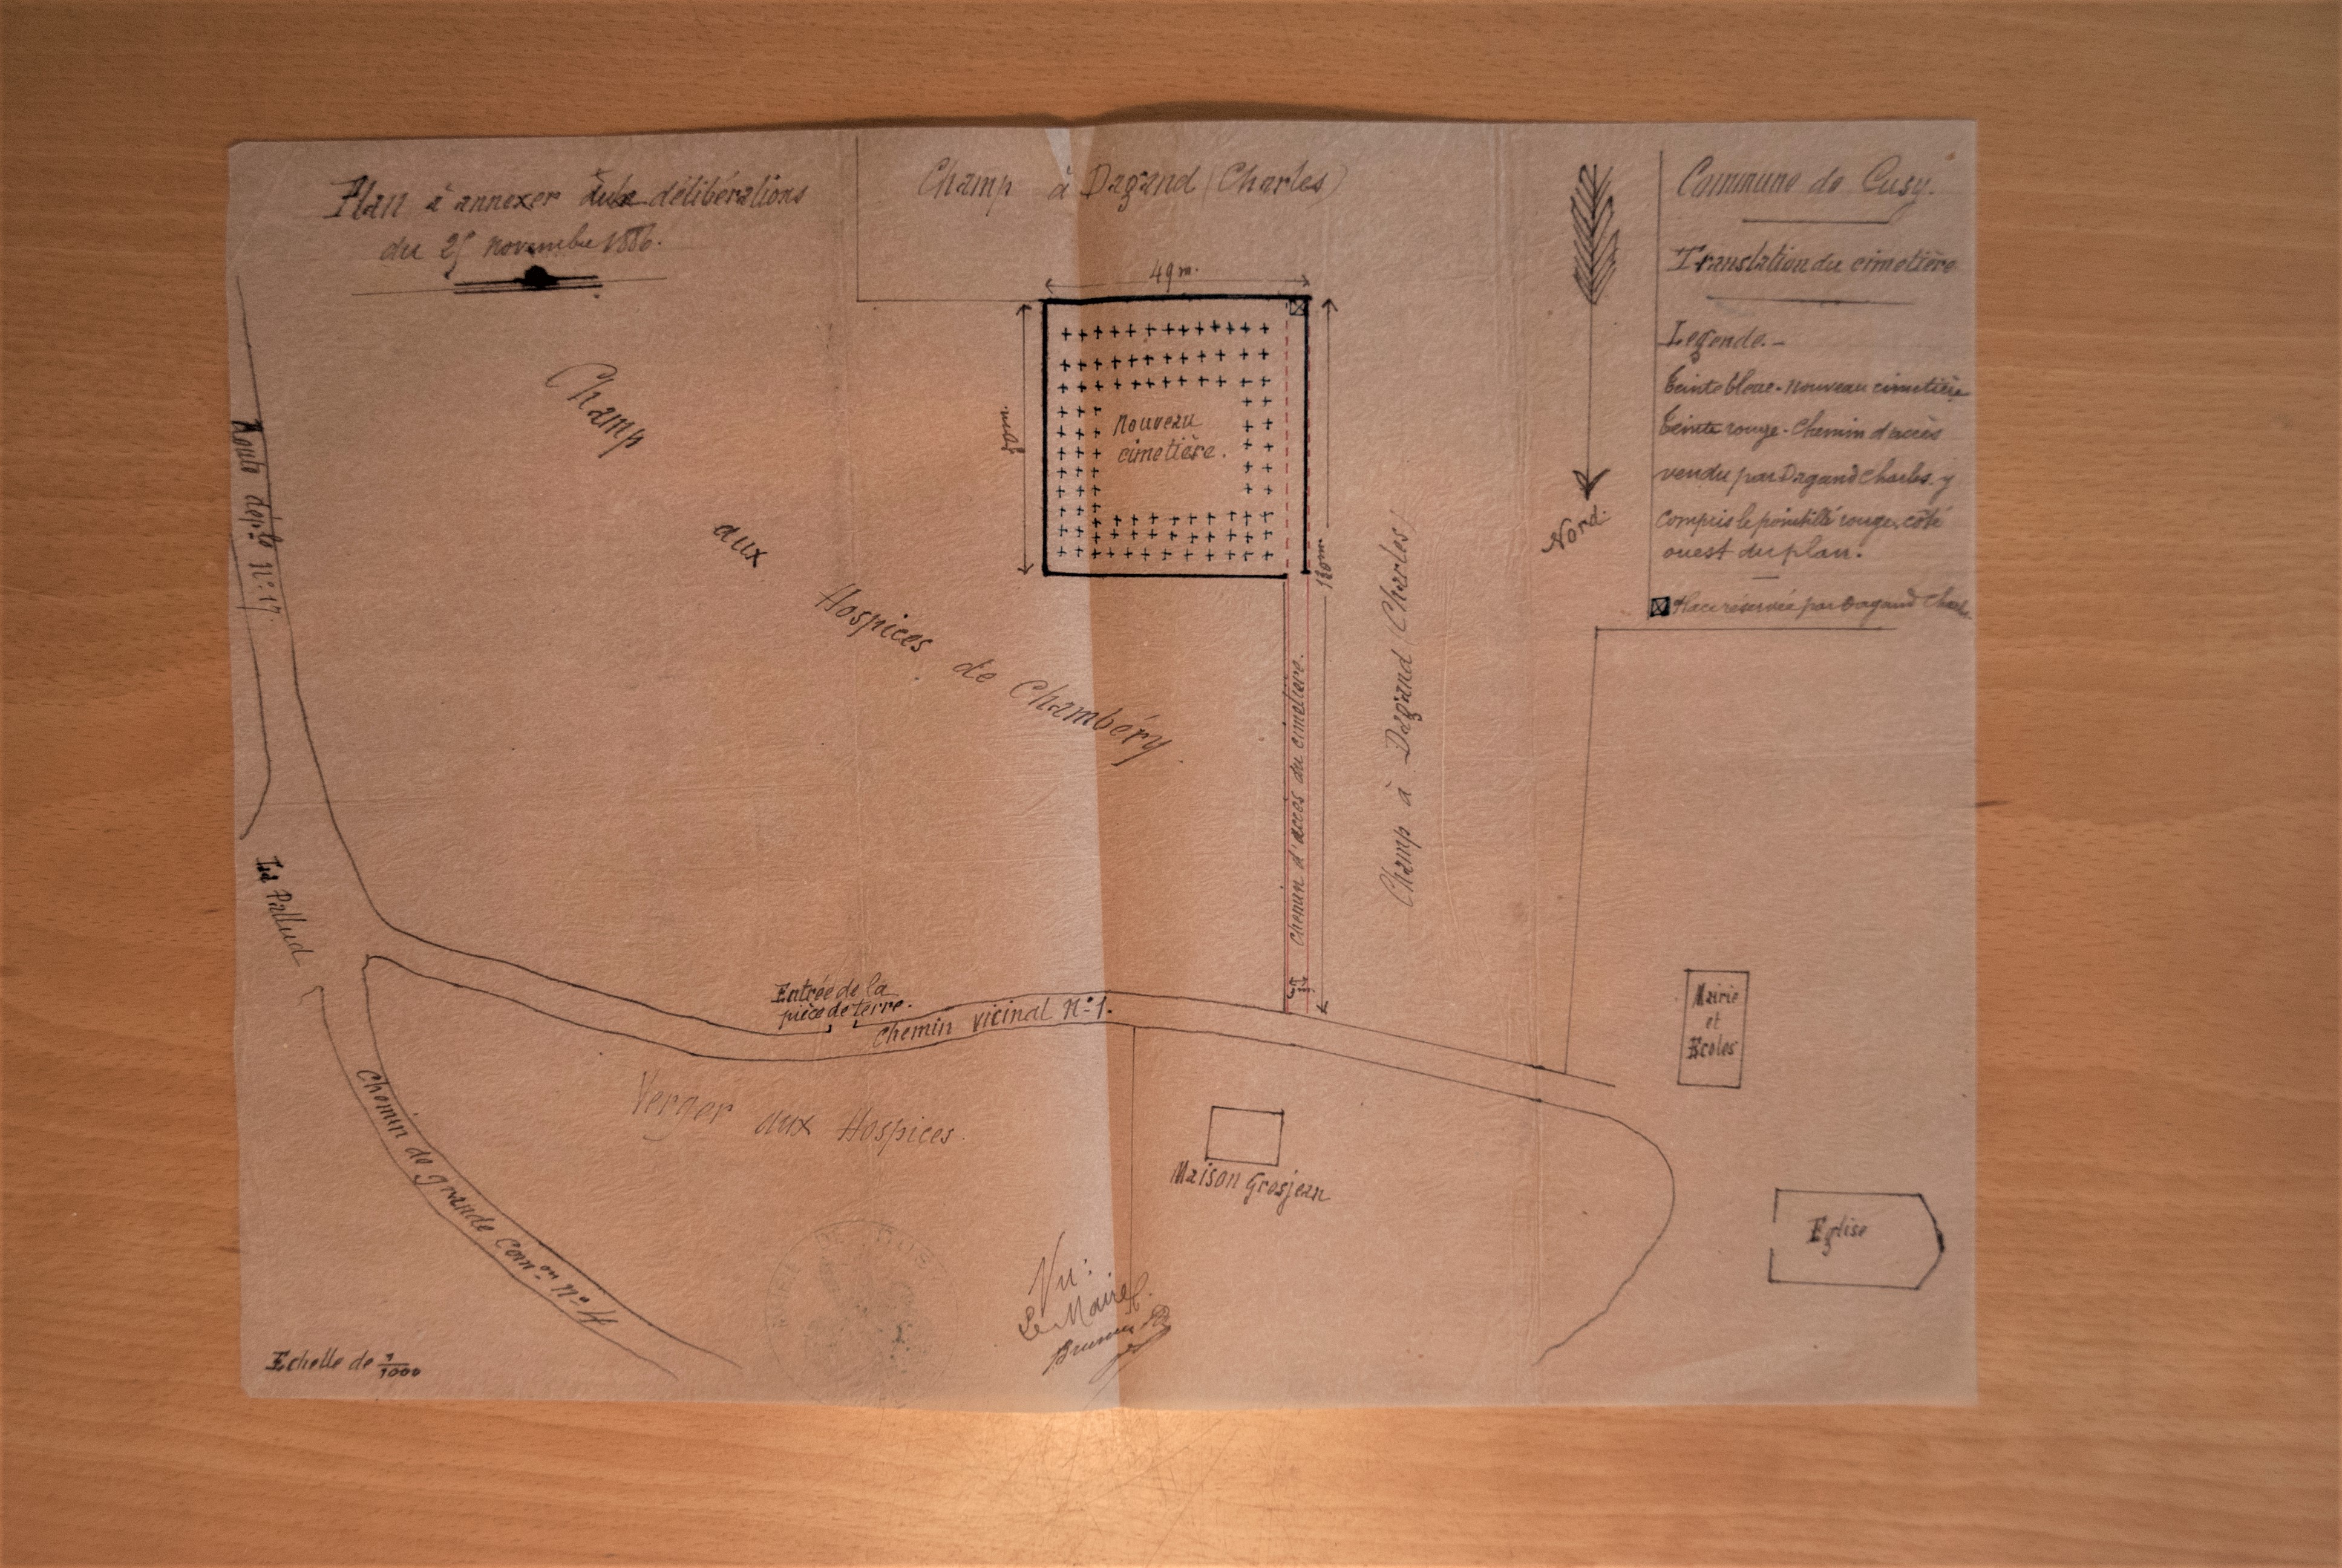 Plan à annexer délibérations
du novembre 1886.
Champ à Dagand (Charles)
Commune de Cusy.
Translation du cimetière
Legende.-
Teinte bleue - nouveau cimetière
Teinte rouge - Chemin d'accès
vendu par Dagand Charles y
compris le pointillé rouge, côté
ouest du plan.
Place réservée par Dagand Charles
Nord.
49 m.
49 m.
120 m.
nouveau
cimetière.
Champ
aux
Hospices de Chambéry.
Route dép.le N:17.
La Pallud
Chemin d'accès du cimetière.
Champ à Dagand (Charles)
Entrée de la
pièce de terre.
Chemin vicinal N:1.
Verger aux Hospices.
Chemin de grande Com.on N:4
Maison Grosjean
Mairie
et
Ecoles
Eglise
Vu:
Le Maire
Echelle de 1/1000